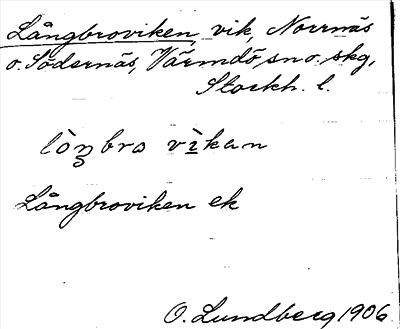 Långbroviken, vik, Norrnäs
o. Södernäs, Värmdö sn o. skg,
Stockh. l.
lòŋbro vìkan
Långbroviken ek
O. Lundberg 1906